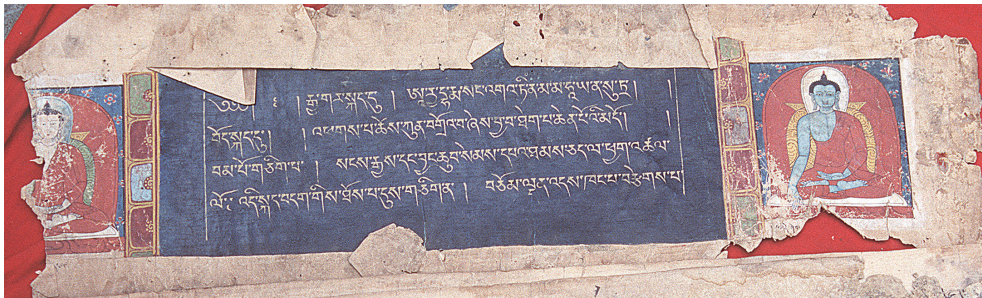 ༄༅། ། །རྒྱ་གར་སྐད་དུ། ཨཱརྱ་དྷརྨ་སང་འགའ་ཏི་ནཱ་མ་མ་ཧཱ་ཡ་ན་སུ་ཏྲ།
བོད་སྐད་དུ། །འཕགས་པ་ཆོས་ཀུན་བགྲོལ་བ་ཞེས་བྱ་བ་ཐེག་པ་ཆེན་པོའི་མདོ། །
བམ་པོ་གཅིག་པ། །སངས་རྒྱས་དང་བྱང་ཆུབ་སེམས་དཔའ་ཐམས་ཅད་ལ་ཕྱག་འཚལ་
ལོ༔ འདི་སྐད་བདག་གིས་ཐོས་པ་དུས་གཅིག་ན། བཅོམ་ལྡན་འདས་ཁང་པ་བརྩེགས་པ།